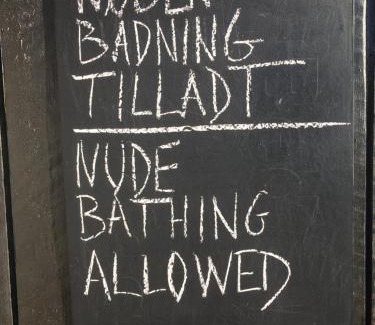 BADNING
TILLADT
NUDE
BATHING
ALLOWED